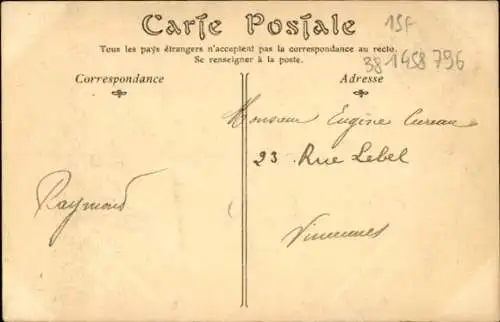 Carte Postale
15F
Tous les pays étrangers n'acceptent pas la correspondance au recto.
Se renseigner à la poste.
381458796
Correspondance
Adresse
Monsieur Eugène Cureau
23 Rue Lebel
Raymond
Vincennes